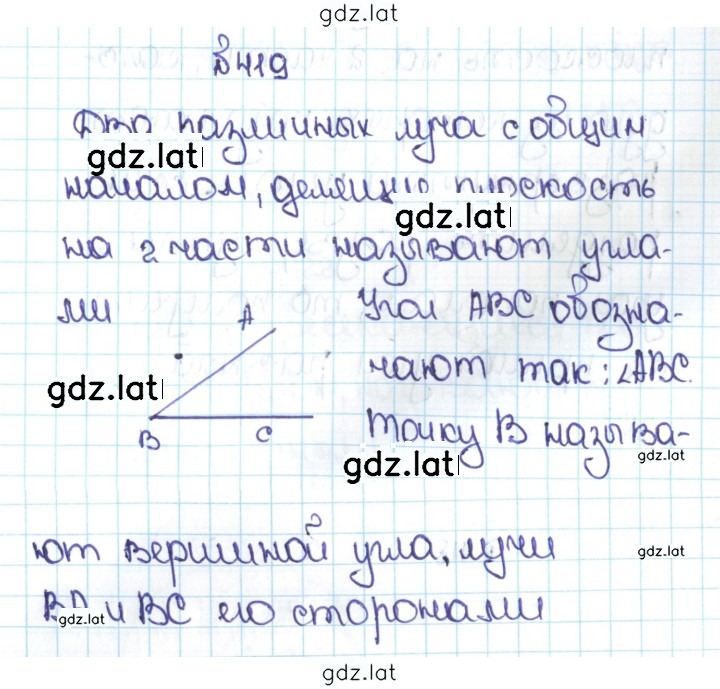 gdz.lat
В419
Два различных луча с общим
gdz.lat
началом, делящие плоскость
gdz.lat
на 2 части называют угла-
ми A Угол ABC обозна-
gdz.lat
чают так: ∠ABC.
B C Точку B называ-
gdz.lat
gdz.lat
ют вершиной угла, лучи
gdz.lat
и BC его сторонами
gdz.lat
gdz.lat